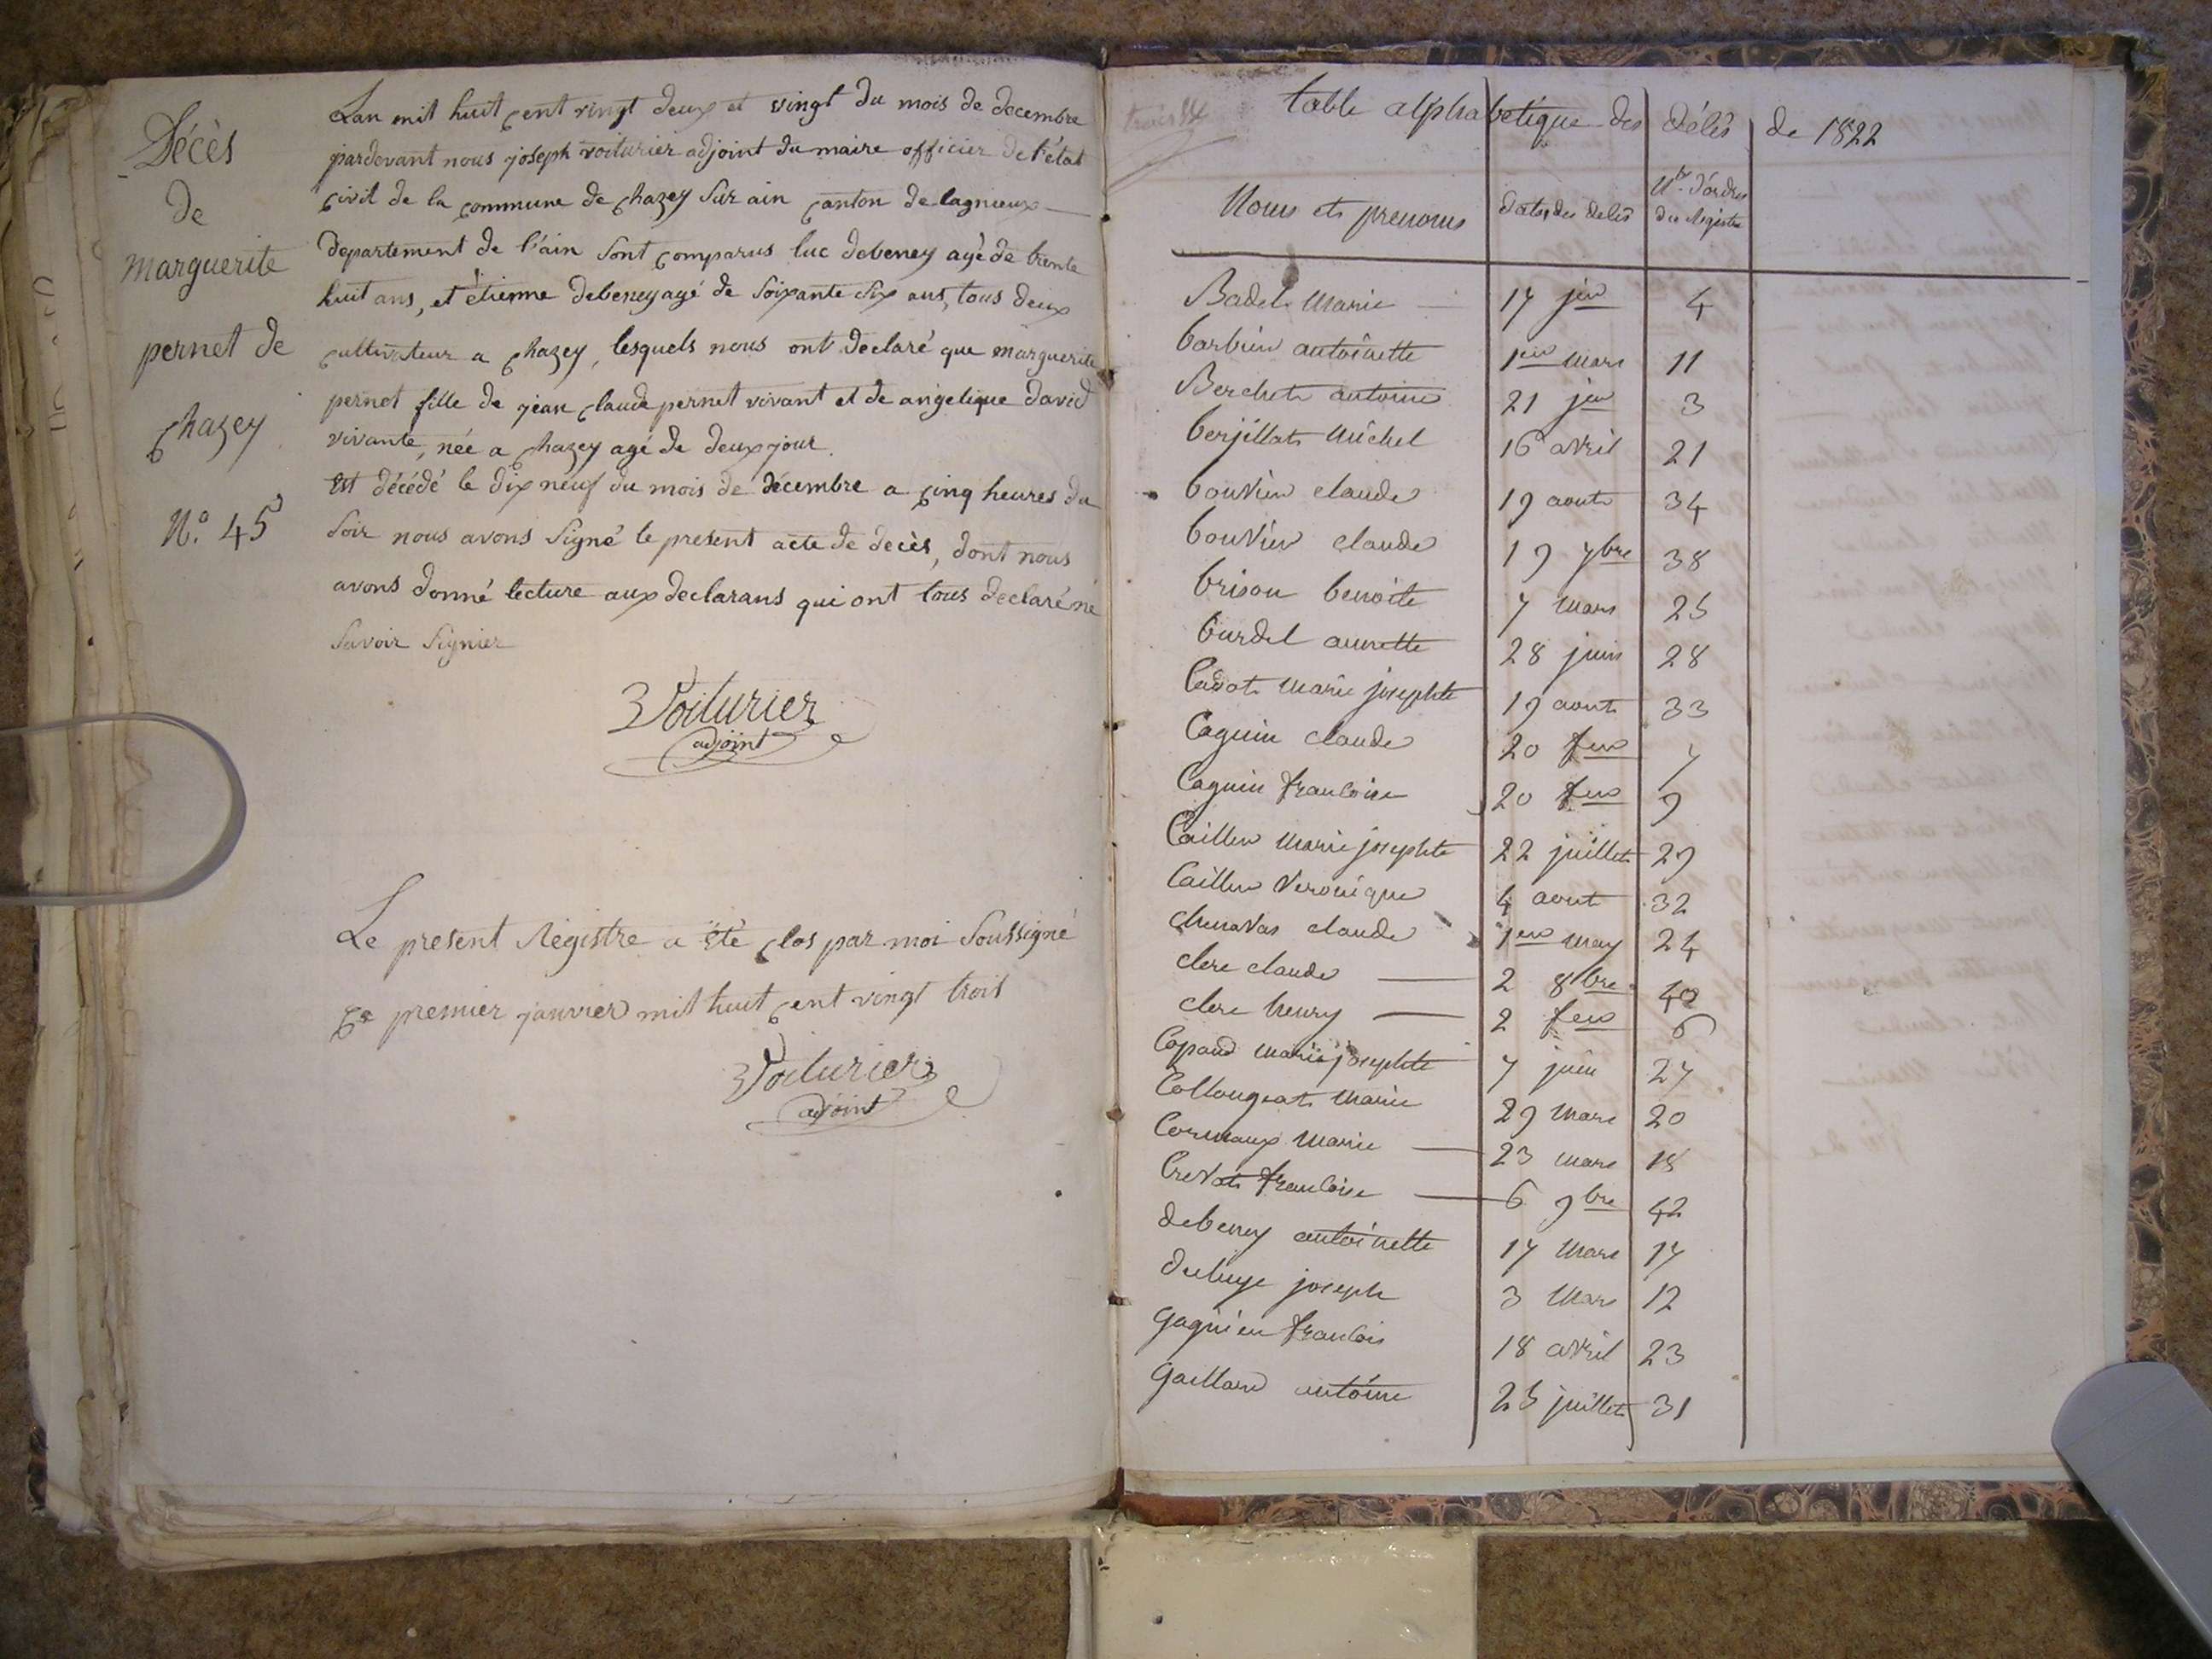 Décès
de
marguerite
pernet de
chazey
N.o 45
Lan mil huit cent vingt deux et vingt du mois de decembre
pardevant nous joseph voiturier adjoint du maire officier de l'état
civil de la commune de chazey sur ain canton de lagnieux
departement de l'ain sont comparus luc debeney agé de trente
huit ans, et étienne debeney agé de soixante six ans, tous deux
cultivateur a chazey, lesquels nous ont declaré que marguerite
pernet fille de jean claude pernet vivant et de angelique david
vivante, née a chazey agé de deux jour.
est décédé le dix neuf du mois de décembre a cinq heures du
soir nous avons signé le present acte de decès, dont nous
avons donné lecture aux declarans qui ont tous declaré ne
savoir signier
Voiturier
adjoint
Le present Régistre a été clos par moi soussigné
Ce premier janvier mil huit cent vingt trois
Voiturier
adjoint
table alphabetique des délès de 1822
Noms et prenoms dates des delès N.bre d'ordres du Registre
Badet Marie 17 jer 4
barbier antoinette 1er Mars 11
Berchet antoine 21 jer 3
berjillat Michel 16 avril 21
bouvier claude 19 aout 34
bouvier claude 19 7bre 38
brison benoite 7 mars 25
burdel annette 28 juin 28
Cadot marie josephte 19 aout 33
Caguin claude 20 fer 7
Caguin francoise 20 fer 9
Cailler Marie josephte 22 juillet 29
Cailler Veronique 4 aout 32
chenavas claude 1er may 24
clere claude 2 8bre 40
clere henry 2 fer 6
Copand marie josephte 7 juin 27
Collougeat Marie 29 Mars 20
Cormaux Marie 23 mars 18
Crevat francoise 6 9bre 42
debeney antoinette 17 Mars 17
joseph 3 Mars 12
gagnieu francois 18 avril 23
gaillard antoine 25 juillet 31